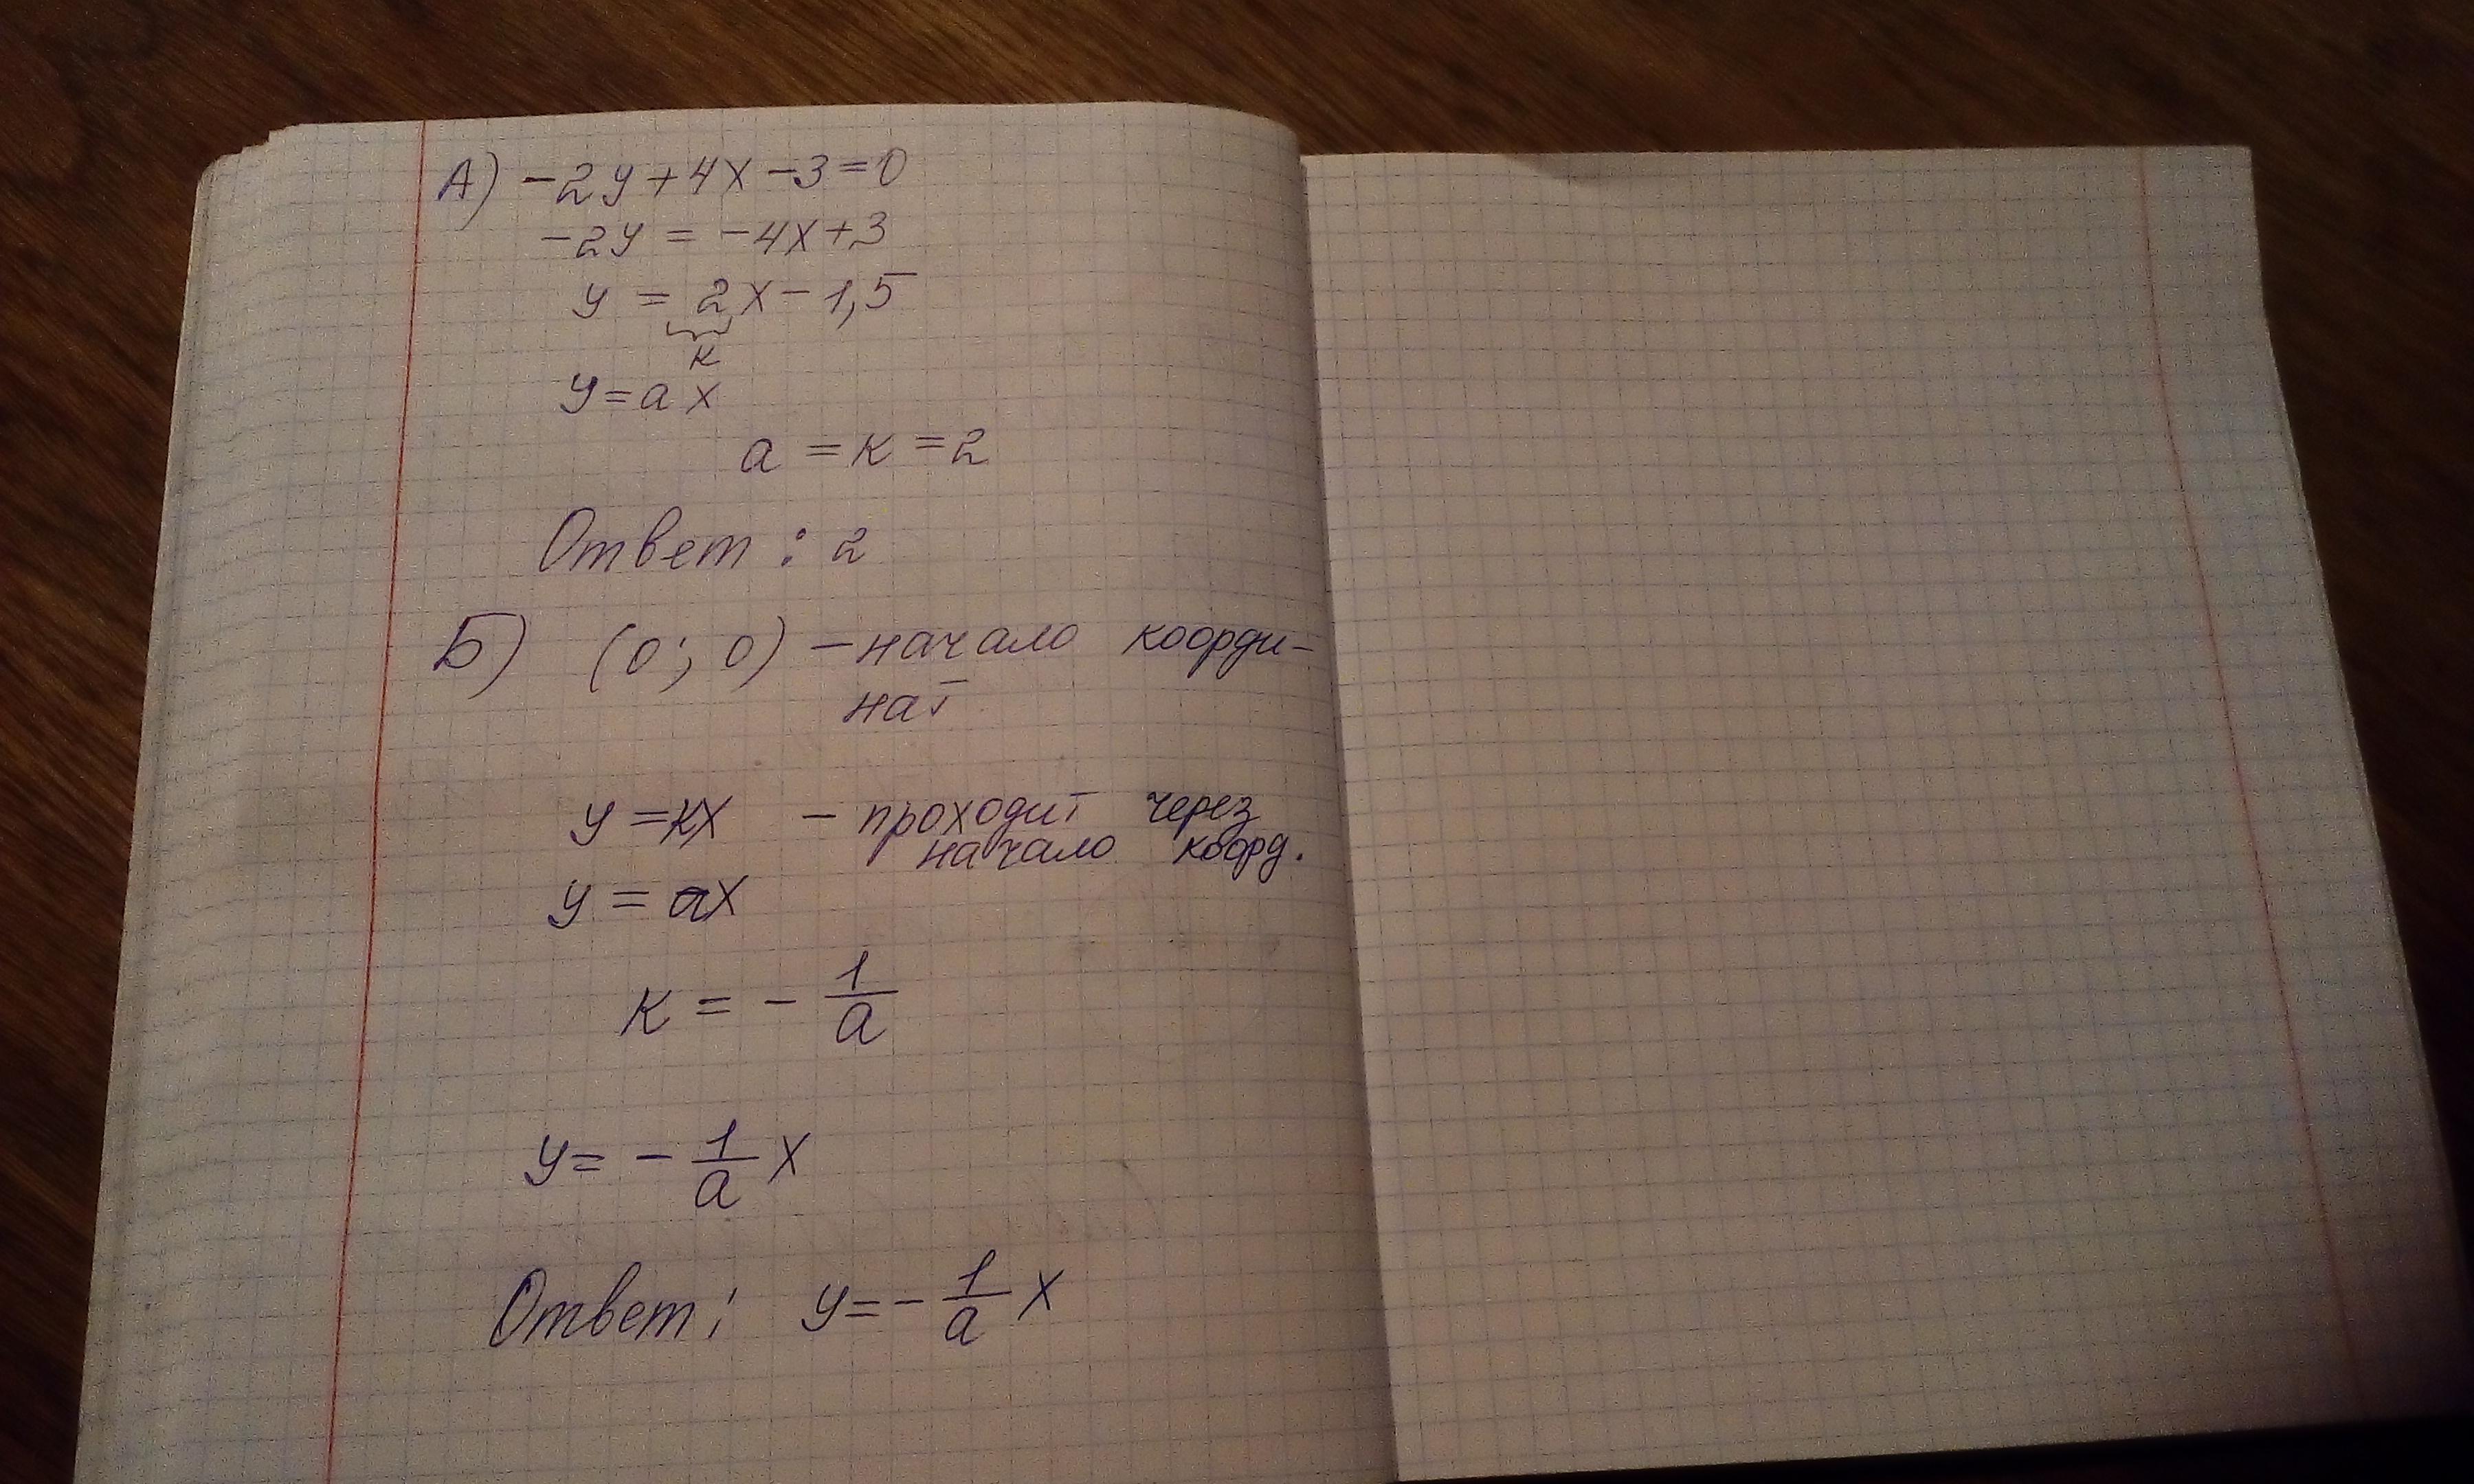 А) -2y+4x-3=0
-2y = -4x+3
y = 2x-1,5
к
y=ax
a = к =2
Ответ : 2
Б) (0; 0) - начало коорди-
нат
y =кx - проходит через
начало коорд.
y = ax
к = - 1/a
y= - 1/a x
Ответ: y=- 1/a x